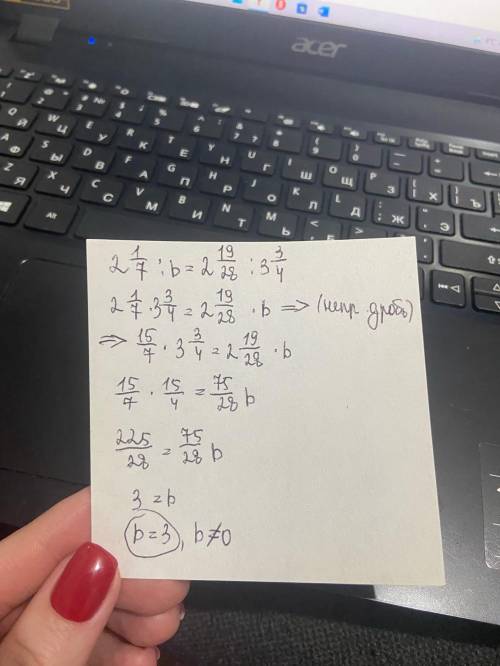 acer
2 1/7 : b = 2 19/28 : 3 3/4
2 1/7 · 3 3/4 = 2 19/28 · b => (непр. дробь)
=> 15/7 · 3 3/4 = 2 19/28 · b
15/7 · 15/4 = 75/28 b
225/28 = 75/28 b
3 = b
b = 3, b ≠ 0